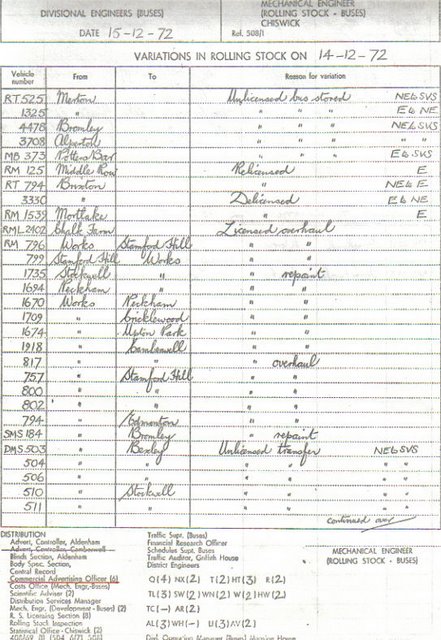 DIVISIONAL ENGINEERS (BUSES)
DATE 15-12-72
MECHANICAL ENGINEER
(ROLLING STOCK - BUSES)
CHISWICK
Ref. 508/1
VARIATIONS IN ROLLING STOCK ON 14-12-72
Vehicle number From To Reason for variation
RT 525 Merton Unlicensed bus stored NE & SVS
1325 " " " " E & NE
4478 Bromley " " " NE & SVS
3708 Alperton " " "
MB 373 Potters Bar " " " E & SVS
RM 125 Middle Row Relicensed E
RT 794 Brixton " NE & E
3330 " Delicensed E & NE
RM 1539 Mortlake " E
RML 2402 Chalk Farm Licensed overhaul
RM 796 Works Stamford Hill " "
799 Stamford Hill Works " "
1735 Stockwell " " repaint
1694 Peckham " " "
1670 Works Peckham " "
1709 " Cricklewood " "
1674 " Upton Park " "
1918 " Camberwell " "
817 " " " overhaul
757 " Stamford Hill " "
800 " " " "
802 " " " "
794 " Edmonton " "
SMS 184 " Bromley " repaint
DMS 503 " Bexley Unlicensed transfer NE & SVS
504 " " " " " "
506 " " " " " "
510 " Stockwell " " " "
511 " " " " " "
continued over
DISTRIBUTION
Advert. Controller, Aldenham
Advert. Controller, Camberwell
Blinds Section, Aldenham
Body Spec. Section,
Central Record
Commercial Advertising Officer (6)
Costs Office (Mech. Engr.-Buses)
Scientific Adviser (2)
Distribution Services Manager
Mech. Engr. (Development - Buses) (2)
R. S. Licensing Section (8)
Rolling Stock Inspection
Statistical Office - Chiswick (2)
Traffic Supt. (Buses)
Financial Research Officer
Schedules Supt. Buses
Traffic Auditor, Griffith House
District Engineers
Q(4) NX(2) T(2) HT(3) R(2)
TL(3) SW(2) WN(2) W(2) HW(2)
TC(-) AR(2)
AL(3) WH(-) U(3) AV(2)
MECHANICAL ENGINEER
(ROLLING STOCK - BUSES)